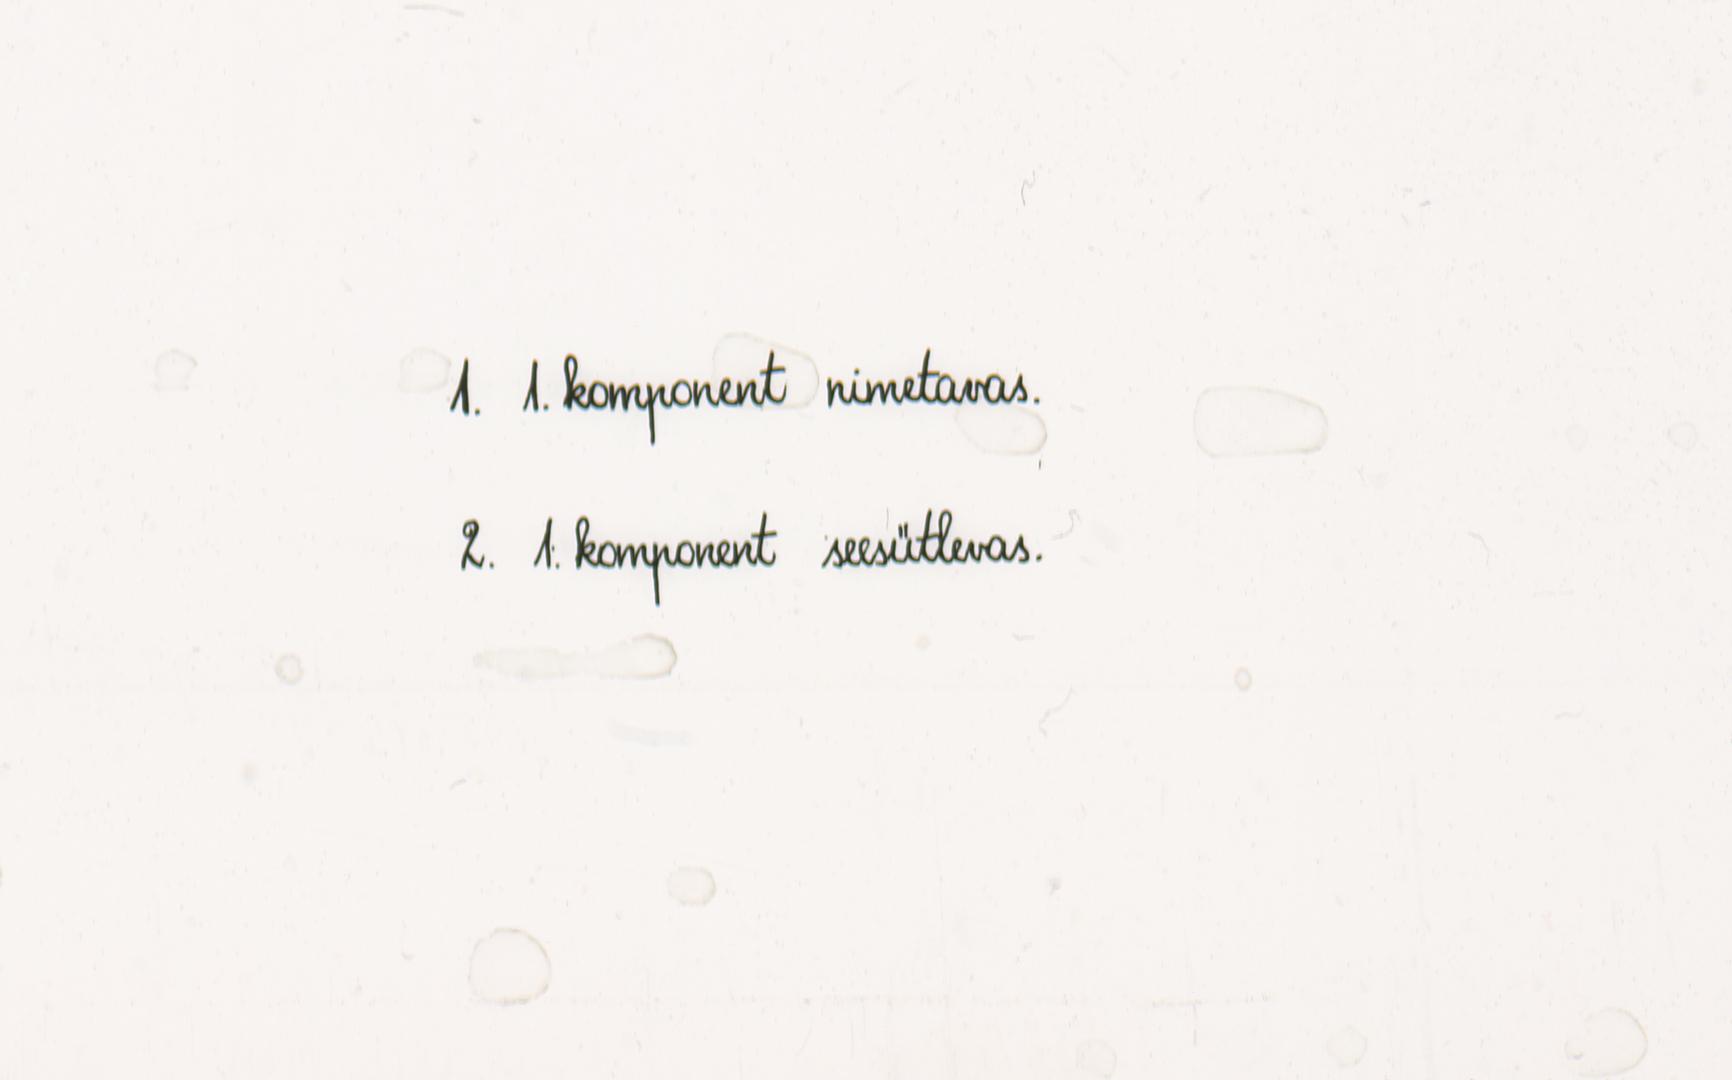 1. 1. komponent nimetavas.
2. 1. komponent seesütlevas.